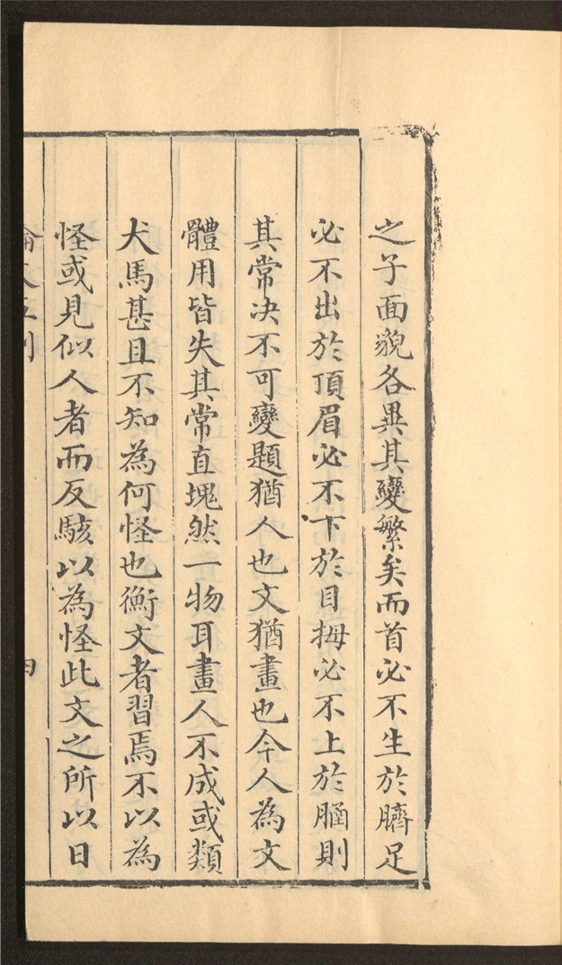 之子面貌各異其變繁矣而首必不生於臍足
必不出於頂眉必不下於目拇必不上於腦則
其常决不可變題猶人也文猶畫也今人為文
體用皆失其常直塊然一物耳畫人不成或類
犬馬甚且不知為何怪也衡文者習焉不以為
怪或見似人者而反駭以為怪此文之所以日